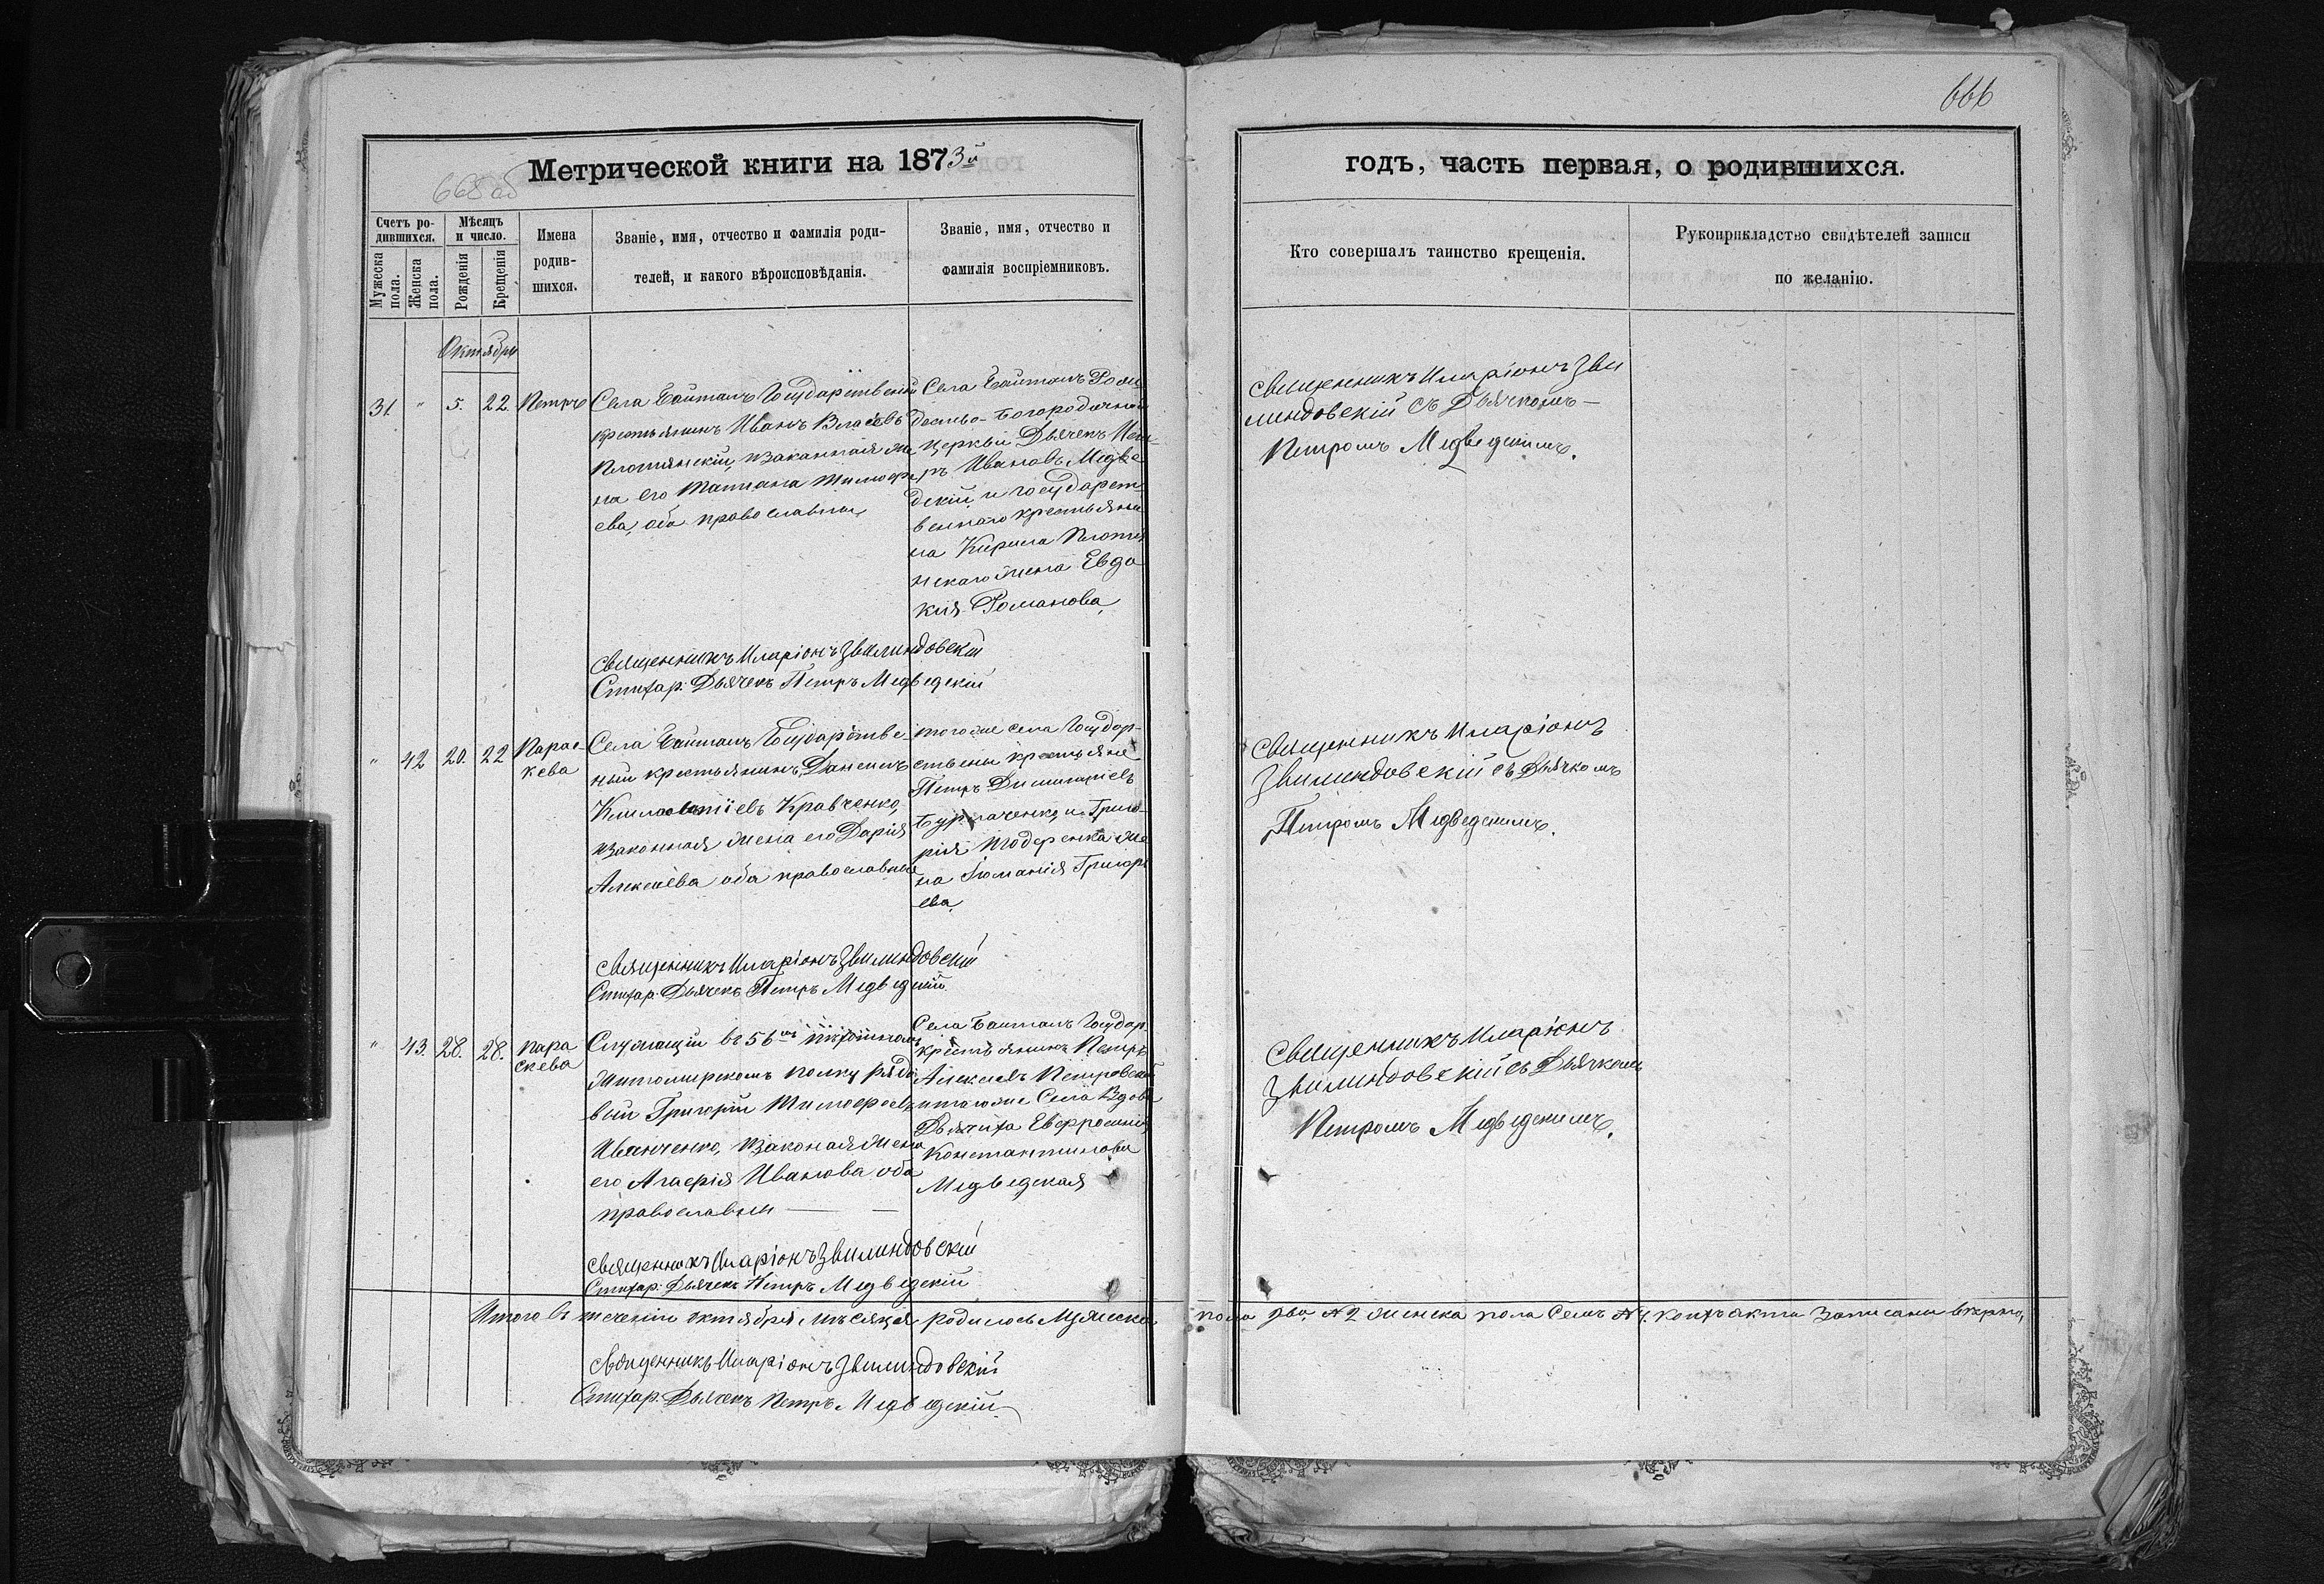 666
668 об
Метрической книги на 1873й
годъ, часть первая, о родившихся.
Счетъ родившихся.
Мужеска пола.
Женска пола.
Мѣсяцъ и число.
Рожденія
Крещенія
Имена родившихся.
Званіе, имя, отчество и фамилія родителей, и какого вѣроисповѣданія.
Званіе, имя, отчество и фамилія воспріемниковъ.
Кто совершалъ таинство крещенія.
Рукоприкладство свидѣтелей записи по желанію.
Октября
31 " 5. 22. Петръ
Села Баиталъ Государственый
крестьянинъ Иванъ Власіевъ
Плотянскій, изаканная же
на его Татиана Тимофе
ева, оба православны
Села Баиталъ Рож
дество-Богородичной
церквы Дьячекъ Пет
ръ Ивановъ Медве
дскій и государст
веннаго крестьяни
на Кирила Плотя
нскаго жена Евдо
кия Романова
Священникъ Иларіонъ Звилиндовскій
съ Дьячкомъ
Петромъ Медведскимъ.
Священникъ Иларіонъ Звилиндовскій
Стихар. Дьячекъ Петръ Медведскій
" 42 20. 22 Парас-
кева
Села Баиталъ Государстве-
ный крестьянинъ Даніилъ
Кравченко,
изаконная жена его Дарія
Алексѣева оба православные
тогоже села Государ-
ствены крестьяне
Петръ Димитріевъ
Бурлаченко и Григо-
рія Тодоренка же
на Іюліанія Григорі
ева
Священникъ Иларіонъ
Звилиндовскій съ Дьячкомъ
Петромъ Медведскимъ.
Священникъ Иларіонъ Звилиндовскій
Стихар. Дьячекъ Петръ Медведскій
" 43. 28. 28. Пара
скева
Служащій въ 56мъ пѣхотномъ
Житомирскомъ полку рядо
вый Григорій Тимофеевъ
Иванченко, изаконая жена
его Агафія Иванова оба
православны
Села Баиталъ Государ.
крестьянинъ Петръ
Алексѣевъ Петровскій
итогоже Села Вдова
Дьячиха Евфросинія
Константинова
Медведская
Священникъ Иларіонъ
Звилиндовскій съ Дьячкомъ
Петромъ Медведскимъ.
Священникъ Иларіонъ Звилиндовскій
Стихар. Дьячекъ Петръ Медведскій
Итого въ теченіи октября мѣсяца родилось Мужеска пола два № 2 женска пола Семъ № 7. акти записаны вѣрно,
Священникъ Иларіонъ Звилиндовскій
Стихар. Дьячекъ Петръ Медведскій